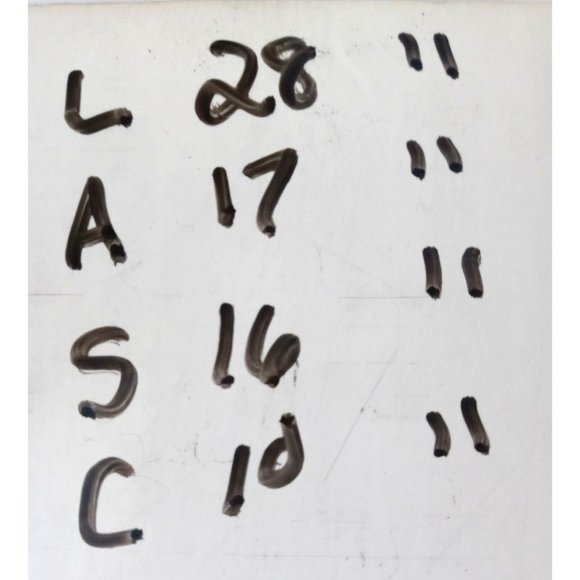 L 28 "
A 17 "
S 16 "
C 10 "